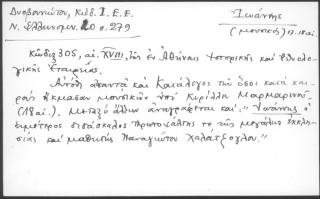 Δυοβουνιώτου, Κώδ. Ι. Ε. Ε.
Ν. Ἑλληνομν. 20 σ. 279
Ἰωάννης
(μουσικός) 17-18 αἰ.
Κώδιξ 305, αἰ. XVIII, τῆς ἐν Ἀθήναις Ἱστορικῆς καὶ Ἐθνολογικῆς Ἑταιρίας.
καὶ Κατάλογος τῶν ὅσοι κατὰ καιροὺς ἤκμασαν μουσικῶν ὑπὸ Κυρίλλου Μαρμαρινοῦ
(18 αἰ.). Μεταξὺ ἄλλων ἀναγράφεται καὶ: "Ἰωάννης ὁ
ἡμέτερος διδάσκαλος πρωτοψάλτης τε τῆς μεγάλης ἐκκλησίας
καὶ μαθητὴς Παναγιώτου Χαλάτζογλου."